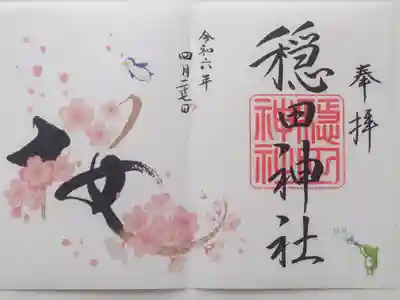 奉拝
穏田神社
穏田
神社
令和六年
四月二十七日
桜